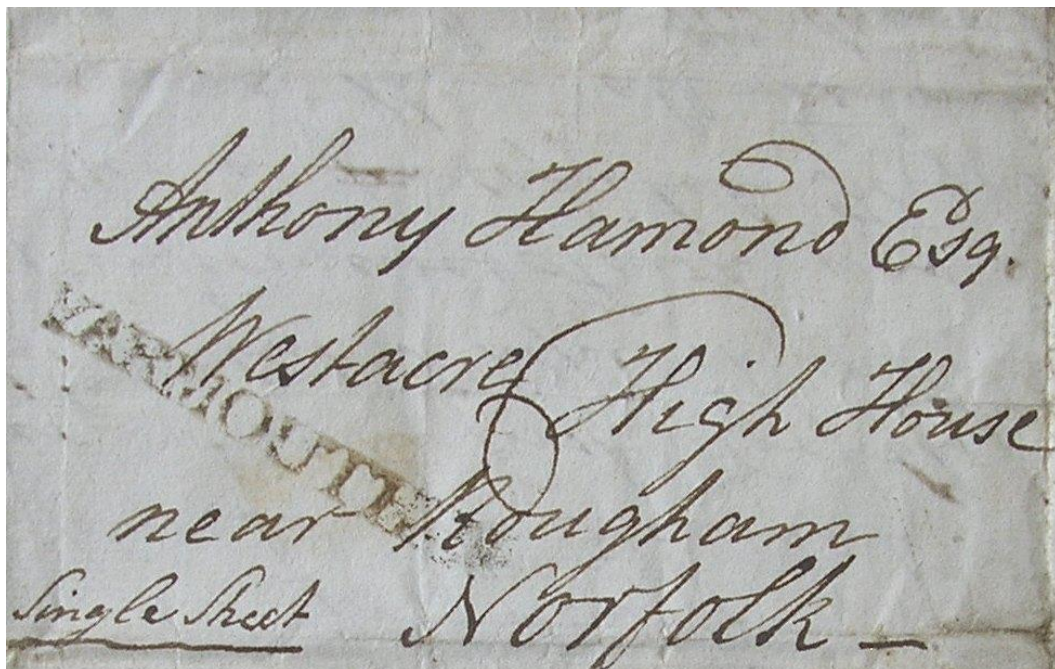 Anthony Hamond Esq.
Westacre High House
YARMOUTH
near Rougham
Single Sheet Norfolk —